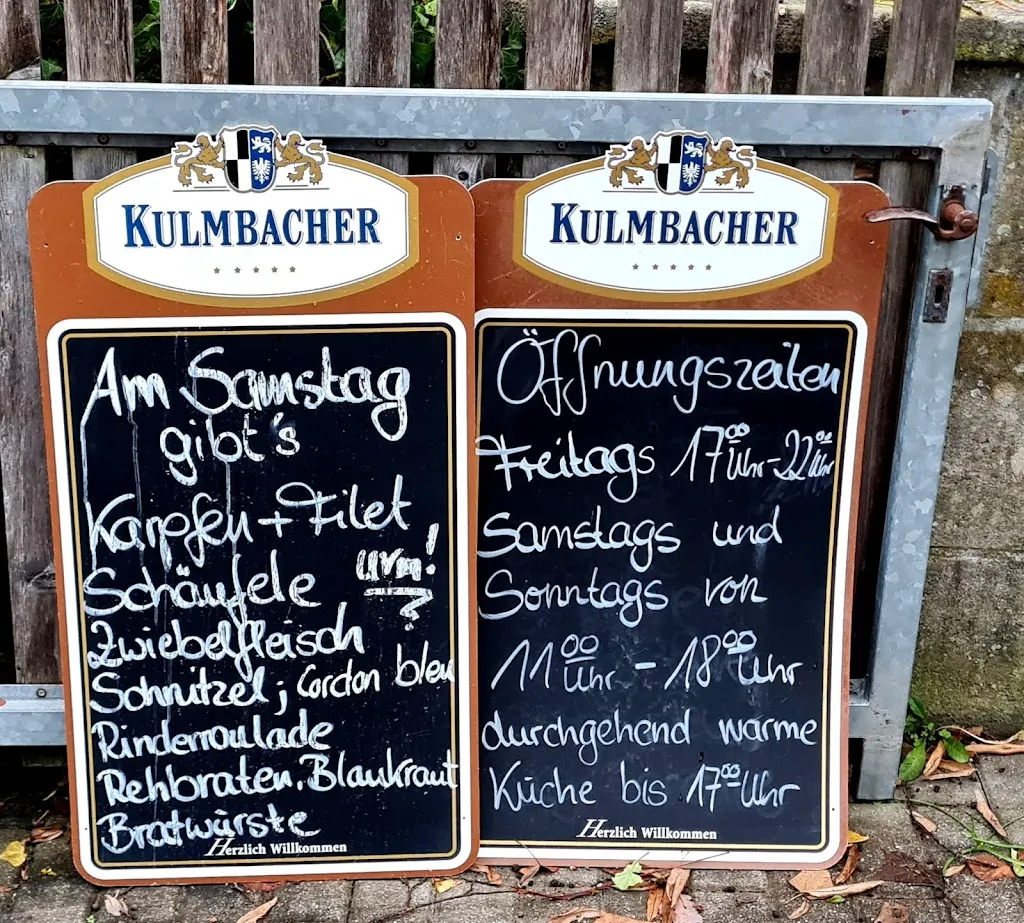 KULMBACHER
Am Samstag
gibt's
Karpfen + Filet
Schäufele
Zwiebelfleisch
Schnitzel; Cordon bleu
Rinderroulade
Rehbraten. Blaukraut
Bratwürste
Herzlich Willkommen
KULMBACHER
Öffnungszeiten
Freitags 17⁰⁰ Uhr - 22⁰⁰ Uhr
Samstags und
Sonntags von
11⁰⁰ Uhr - 18⁰⁰ Uhr
durchgehend warme
Küche bis 17⁰⁰ Uhr
Herzlich Willkommen